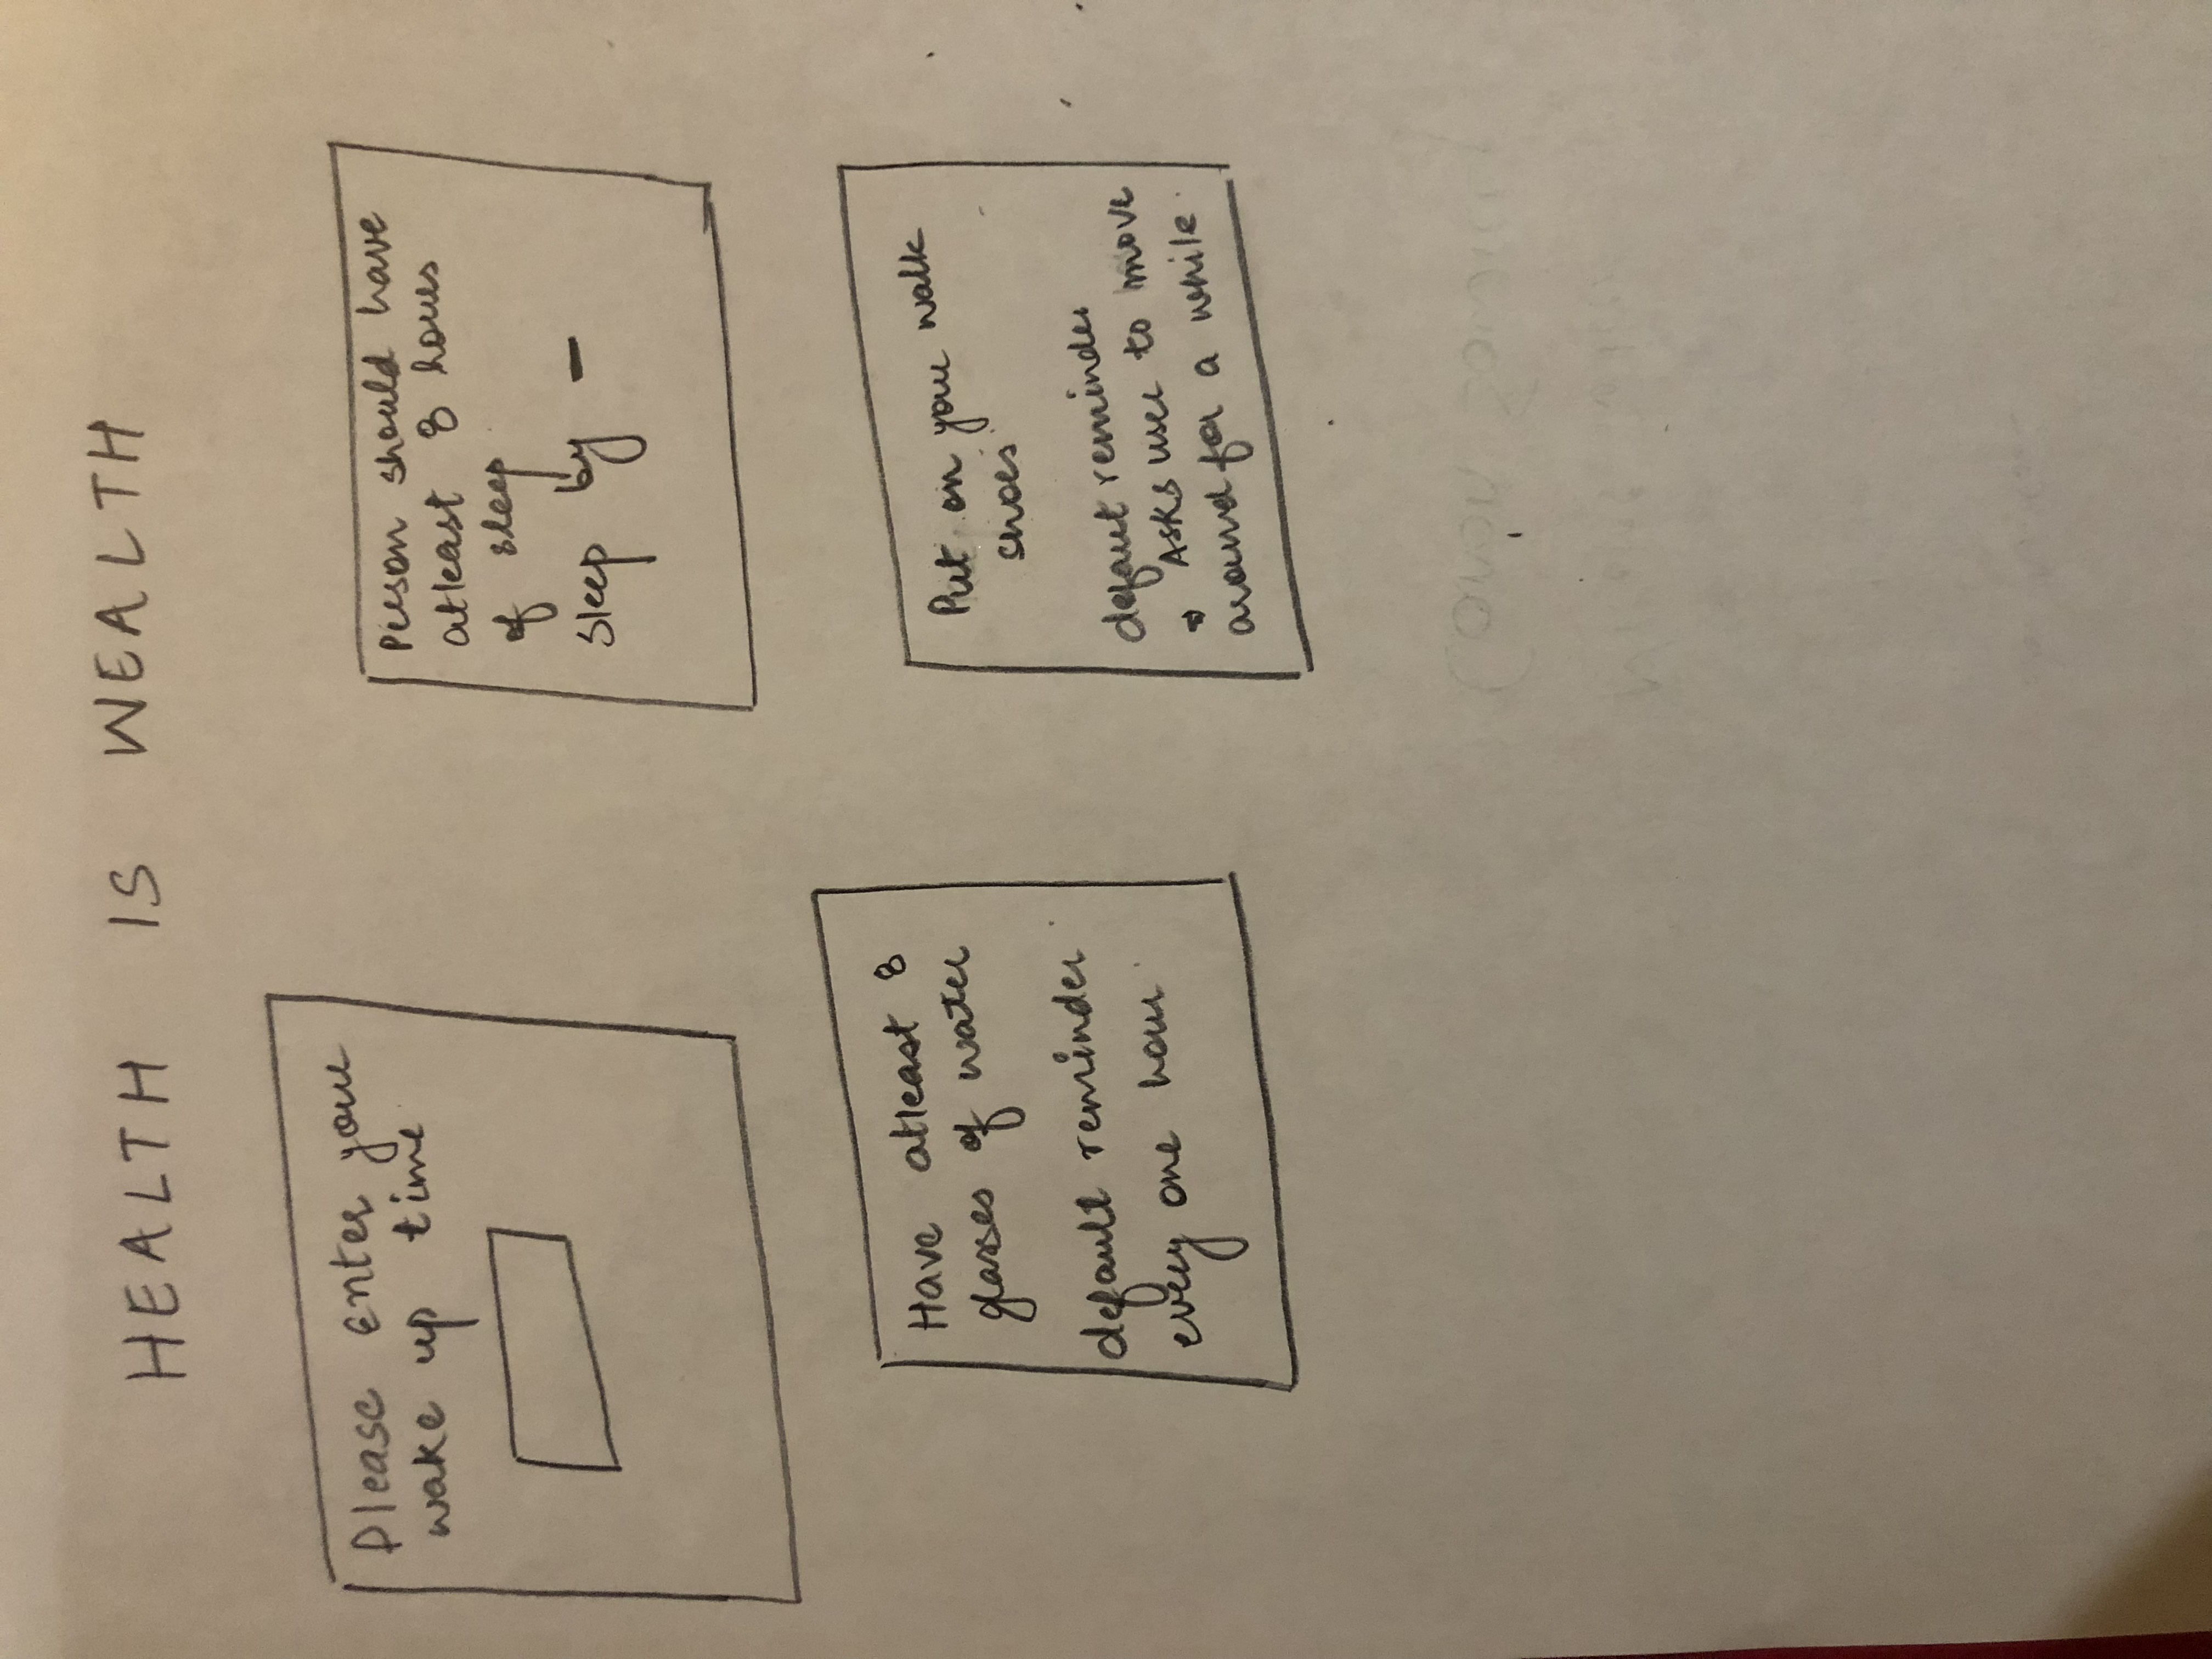 HEALTH IS WEALTH
Please enter your
wake up time
Person should have
atleast 8 hours
of sleep
sleep by -
Have atleast 8
glasses of water
default reminder
every one hour.
Put on your walk
shoes.
default reminder
→ Asks user to move
around for a while.